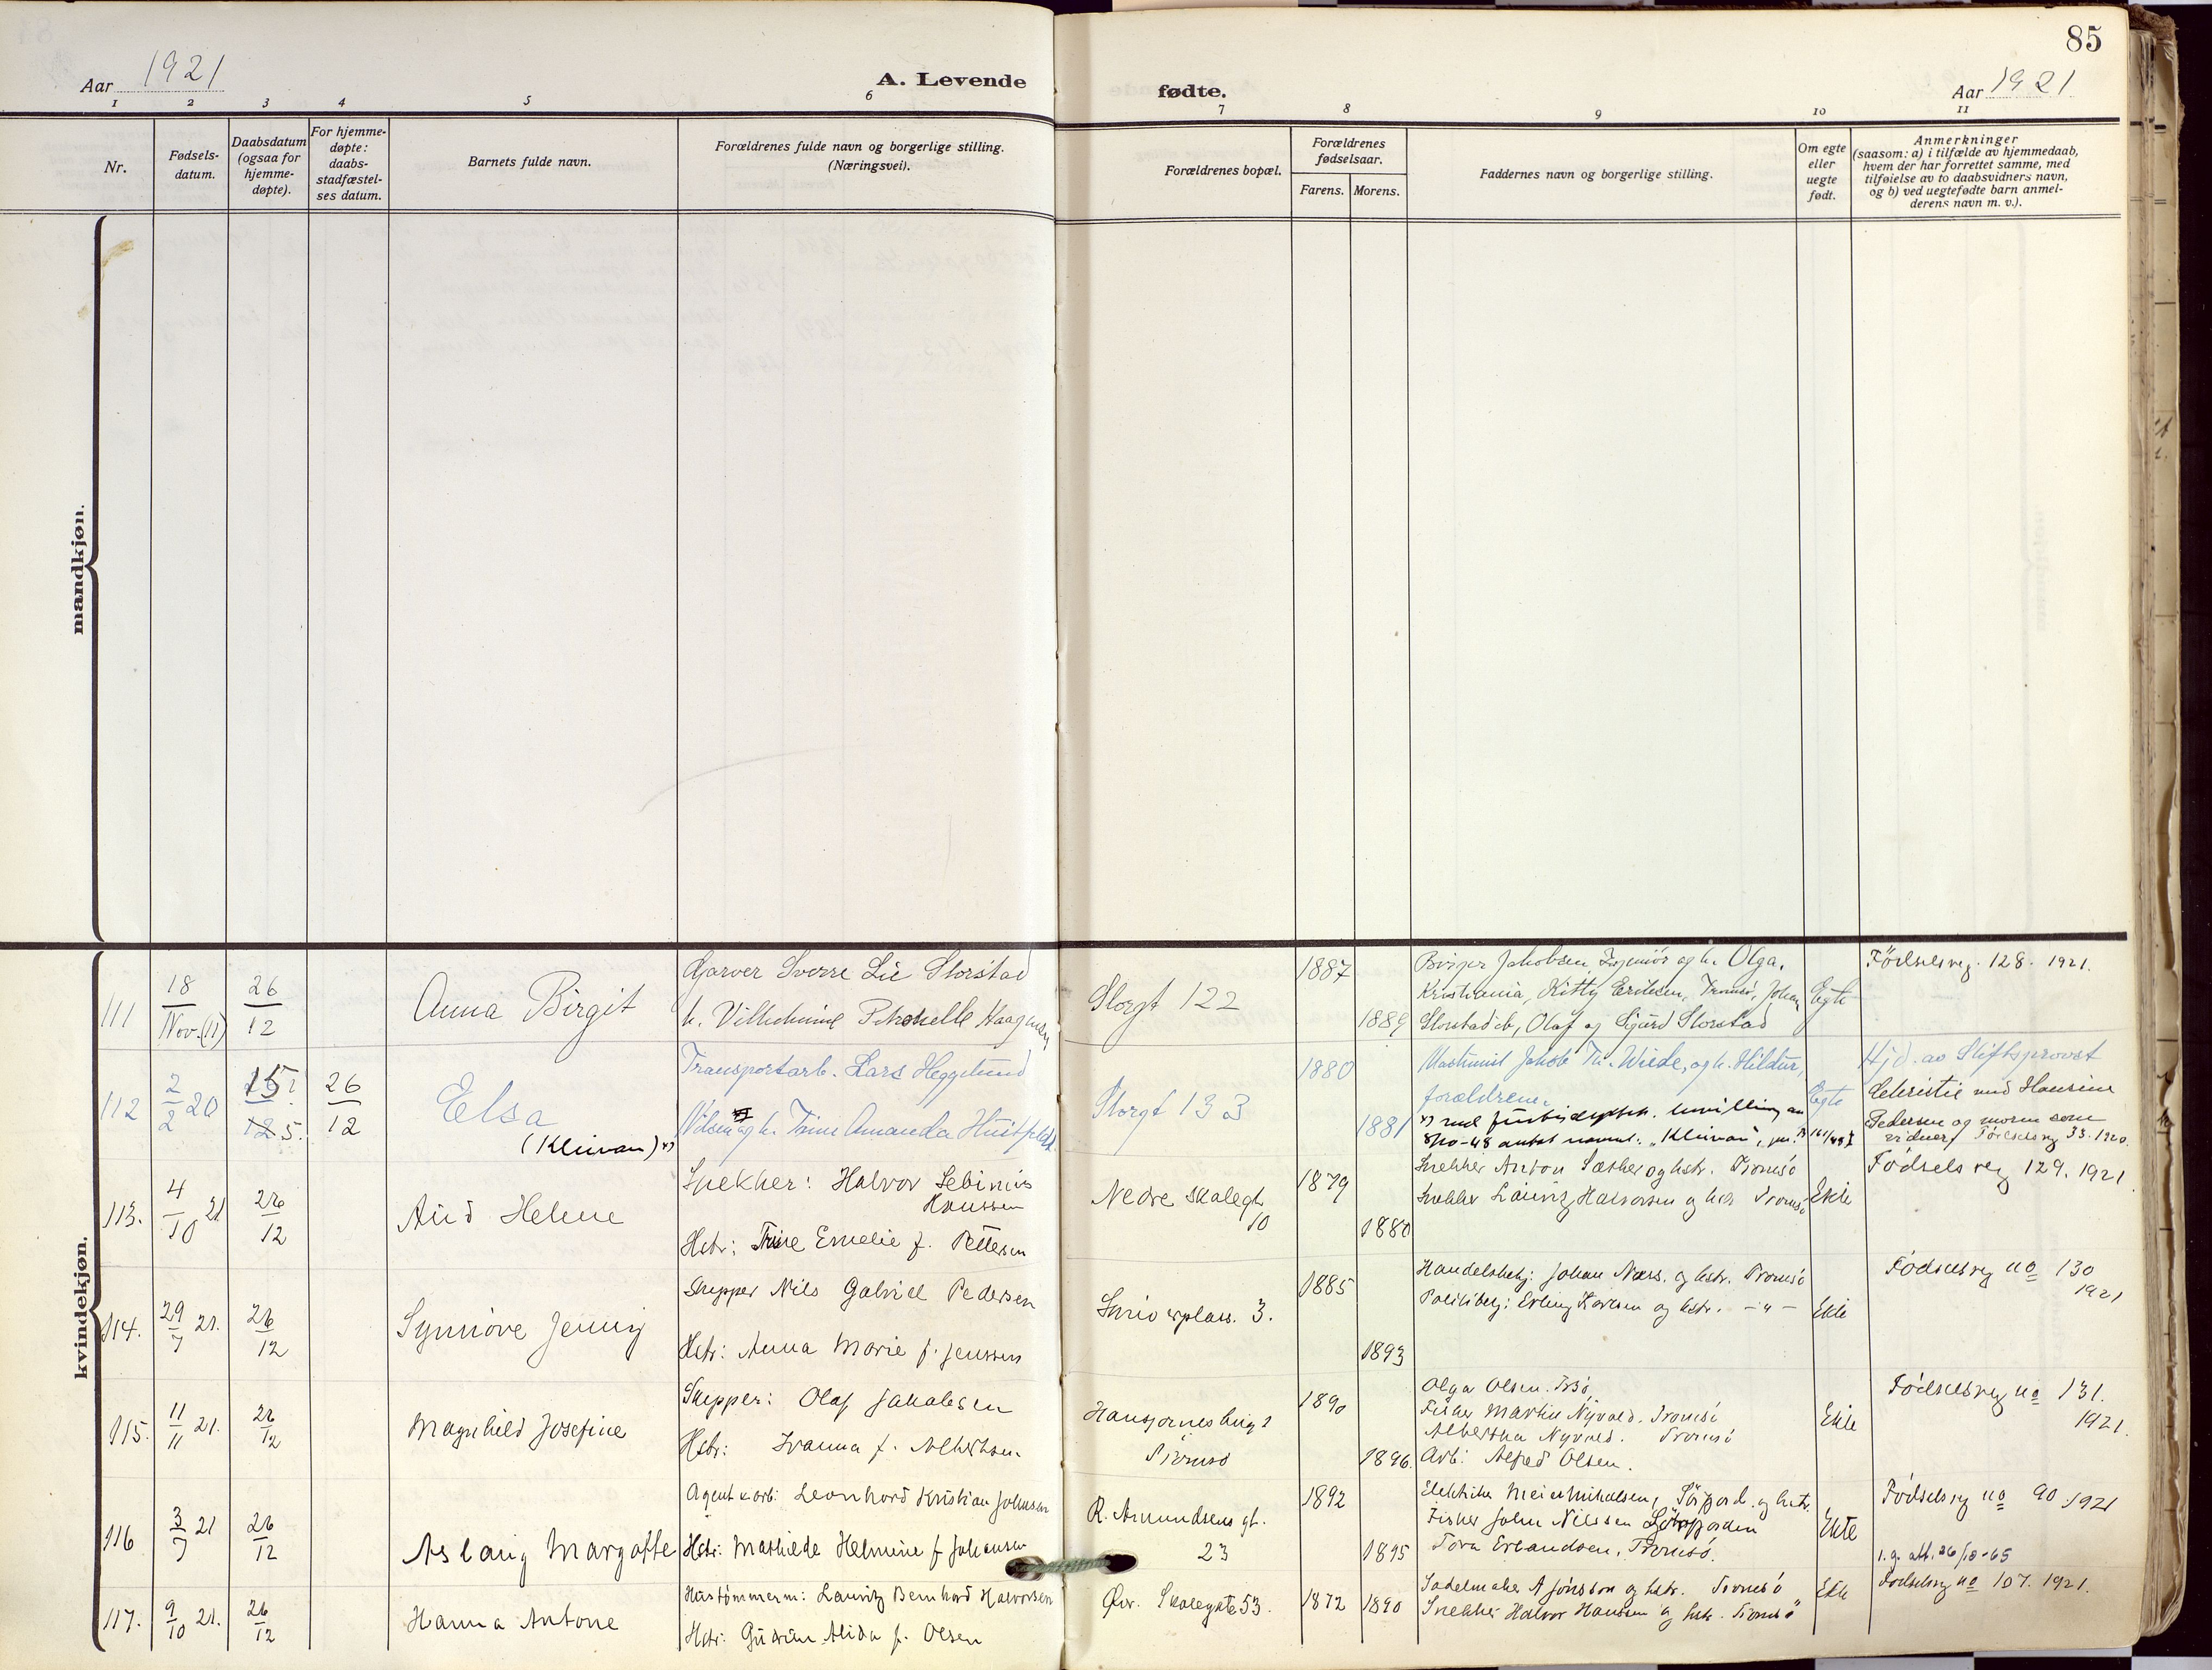 85
Aar 1921
A. Levende
fødte.
Aar 1921
1 2 3 4 5 6 7 8 9 10 11
Nr.
Fødsels-
datum.
Daabsdatum
(ogsaa for
hjemme-
døpte).
For hjemme-
døpte:
daabs-
stadfæstel-
ses datum.
Barnets fulde navn.
Forældrenes fulde navn og borgerlige stilling.
(Næringsvei).
Forældrenes bopæl.
Forældrenes
fødselsaar.
Farens. Morens.
Faddernes navn og borgerlige stilling.
Om egte
eller
uegte
født.
Anmerkninger
(saasom: a) i tilfælde av hjemmedaab,
hvem der har forrettet samme, med
tilføielse av to daabsvidners navn,
og b) ved uegtefødte barn anmel-
derens navn m. v.).
mandkjøn.
kvindekjøn.
111
18
Nov. (11)
26
12
Anna Birgit
Garver Sverre Lie Storstad
h. Vilhelmine Petronelle Haagensen
Storgt 122
1887
1889
Birger Jakobsen, Ingeniør og h. Olga,
Kristiania, Kitty Eriksen, Tromsø, Johan
Storstad, Olaf og Sigurd Storstad
Egte
Födselsreg. 128. 1921.
112
2
2 20
15
5.
26
12
Elsa
(Kluvan) x)
Transportarb. Lars Heggelund
Nilsen og h. Trine Amanda Huitfeldt
Storgt 133
1880
1881
Jakob Th. Wiede, og h. Hildur,
forældrene.
x) ved
8/10-48 antat navnet: "Kluvan",
Egte
Hjd. av Stiftsprovst
med Hansine
Pedersen og moren som
vidner/ Fødselsreg 33. 1920.
113.
4
10 21
26
12
Aud Helene
Snekker: Halvor Sebinius
Hanssen
Hstr: Trine Emelie f. Pettersen
Nedre Skolegt.
10
1879
1880
Snekker Anton Sæther og hstr. Tromsø
Snekker Lauritz Halvorsen og hstr Tromsø
Ekte
Fødsels reg 129. 1921
114.
29
7 21.
26
12
Synnøve Jenny
Skipper Nils Gabriel Pedersen
Hstr: Anna Marie f. Jenssen
Skriverplass. 3.
1885
1893
Handelsbetj: Johan Næss. og hstr. Tromsø
Politibetj: Erling Karlsen og hstr. — " —
Ekte
Fødselsreg no 130
1921
115.
11
11 21.
26
12
Magnhild Josefine
Skipper: Olaf Jakobsen
Hstr: Ivanna f. Albertsen.
Tromsø
1890
1896.
Olga Olsen. Tr.sø
Fisker Martin Nyvold. Tromsø
Albertha Nyvold. Tromsø
Arb: Alfred Olsen.
Ekte
Fødselsreg no 131.
1921.
116
3
7 21
26
12
Aslaug Margothe
Agent & arb: Leonhard Kristian Johnsen
Hstr: Mathilde Helmine f Johansen
R. Amundsens gt.
23
1892
1895
Elektriker Meier Mikalsen, og hstr.
Fisker John Nilssen
Tora Erlandsen, Tromsø.
Ekte
Fødselsreg no 90 1921
1.g. att. 26/10-65
117.
9
10 21.
26
12
Hanna Antone
Hustømmerm: Lauritz Bernhard Halvorsen
Hstr: Gudrun Alida f. Olsen
Øvr. Skolegate 53.
1872
1890
Sadelmaker A Jonsson og hstr. Tromsø
Snekker Halvor Hanssen og hstr. Tromsø
Ekte
Fødselsreg no 107. 1921.